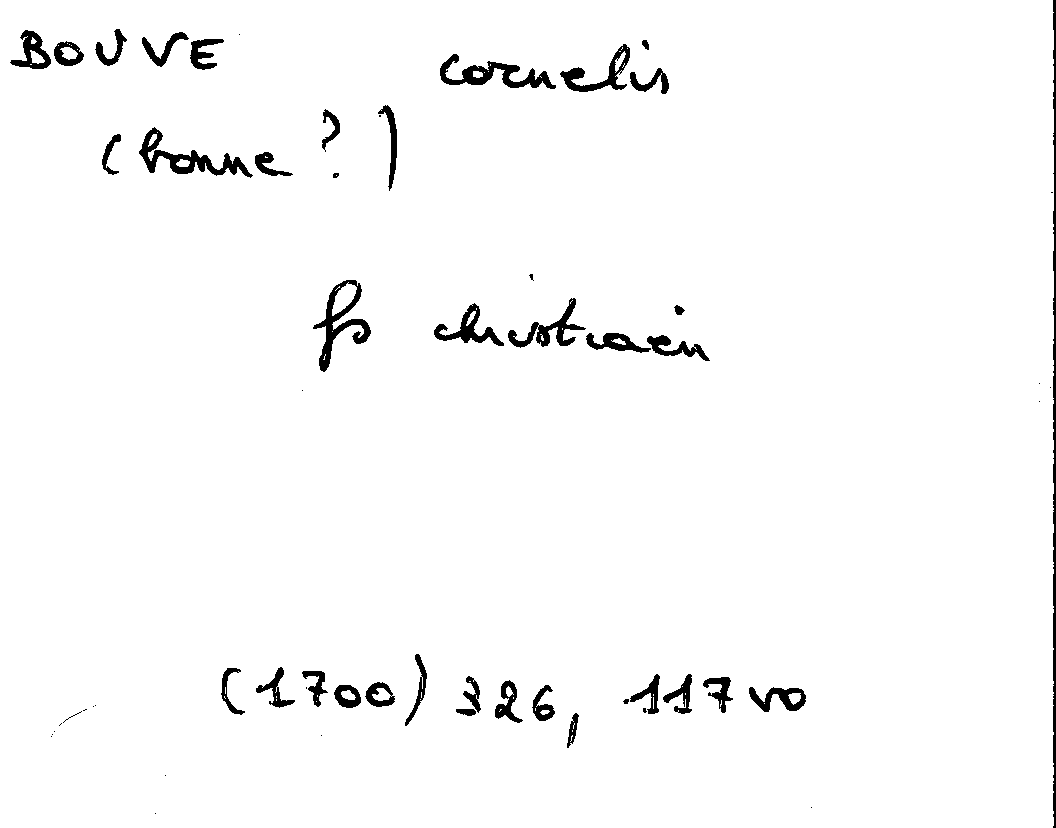 BOUVE cornelis
(bonne ?)
fs christiaen
(1700) 326, 117 vo